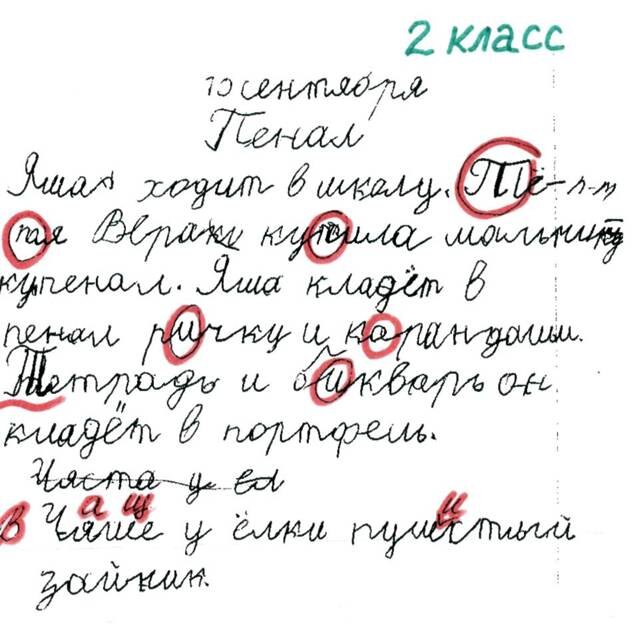 2 класс
10 сентября
Пенал
Яша ходит в школу. Тё-
ая Вера купила мальчику
пенал. Яша кладёт в
пенал ричку и карандаши.
Тетрадь и биикварь он
кладёт в портфель.
Чяста у ел
а щ и
В Чяше у ёлки пушстый
зайчик.